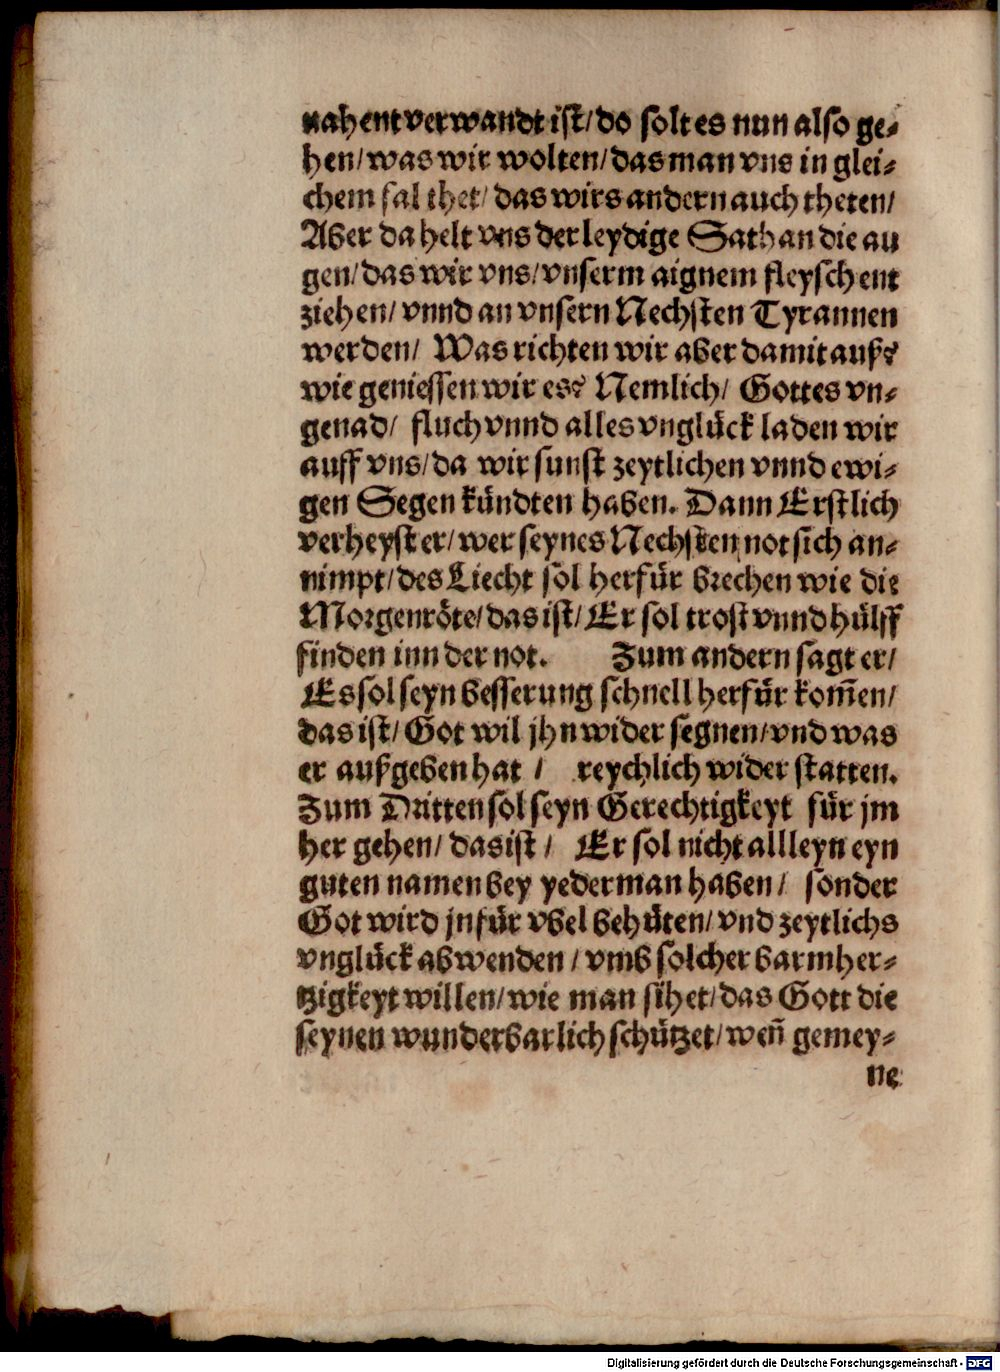 nahent verwandt ist/ do solt es nun also ge⸗
hen/ was wir wolten/ das man vns in glei⸗
chem fal thet/ das wirs andern auch theten/
Aber da helt vns der leydige Sathan die au
gen/ das wir vns/ vnserm aignem fleysch ent
ziehen/ vnnd an vnsern Nechsten Tyrannen
werden/ Was richten wir aber damit auß?
wie geniessen wir es? Nemlich/ Gottes vn⸗
genad/ fluch vnnd alles vnglück laden wir
auff vns/ da wir sunst zeytlichen vnnd ewi⸗
gen Segen kündten haben. Dann Erstlich
verheyst er/ wer seynes Nechsten not sich an⸗
nimpt/ des Liecht sol herfür brechen wie die
Morgenröte/ das ist/ Er sol trost vnnd hülff
finden inn der not. Zum andern sagt er/
Es sol seyn besserung schnell herfür kom̄en/
das ist/ Got wil jhn wider segnen/ vnd was
er außgeben hat / reychlich wider statten.
Zum Dritten sol seyn Gerechtigkeyt für jm
her gehen/ das ist / Er sol nicht allleyn eyn
guten namen bey yederman haben/ sonder
Got wird jn für vbel behüten/ vnd zeytlichs
vnglück abwenden / vmb solcher barmher⸗
tzigkeyt willen/ wie man sihet/ das Gott die
seynen wunderbarlich schützet/ wen̄ gemey⸗
ne
Digitalisierung gefördert durch die Deutsche Forschungsgemeinschaft - DFG